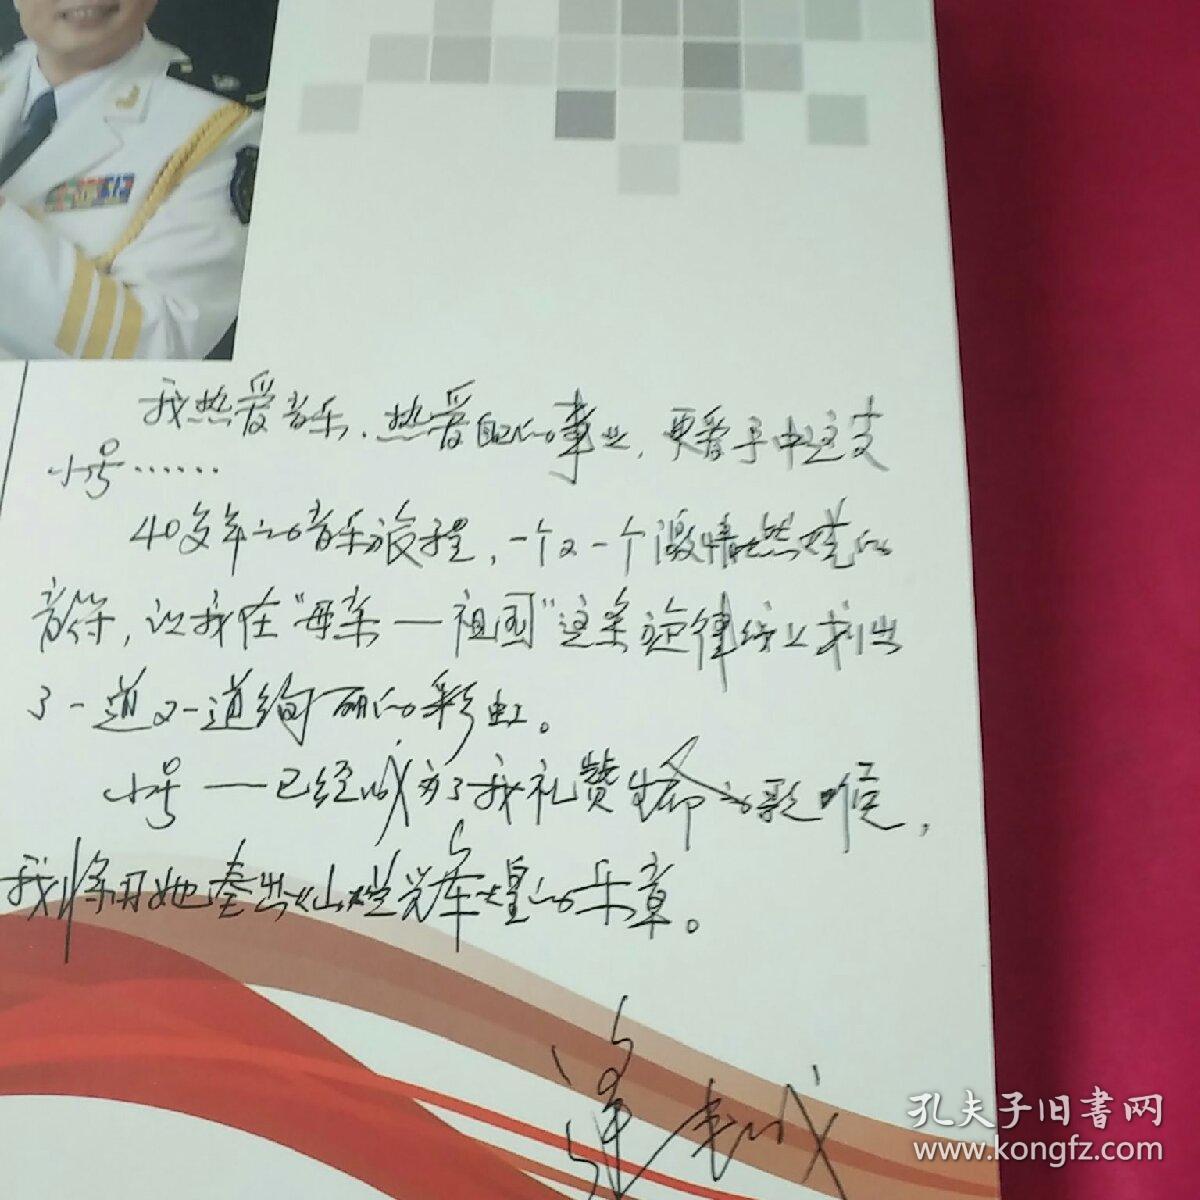 我热爱音乐、热爱自己的事业，更爱手中这支
小号……
40多年的音乐旅程，一个又一个激情燃烧的
音符，让我在“母亲—祖国”这条旋律线上划出
了一道又一道绚丽的彩虹。
小号—已经成为了我礼赞生命的歌喉，
我将用她奏出灿烂辉煌的乐章。
孔夫子旧书网
www.kongfz.com